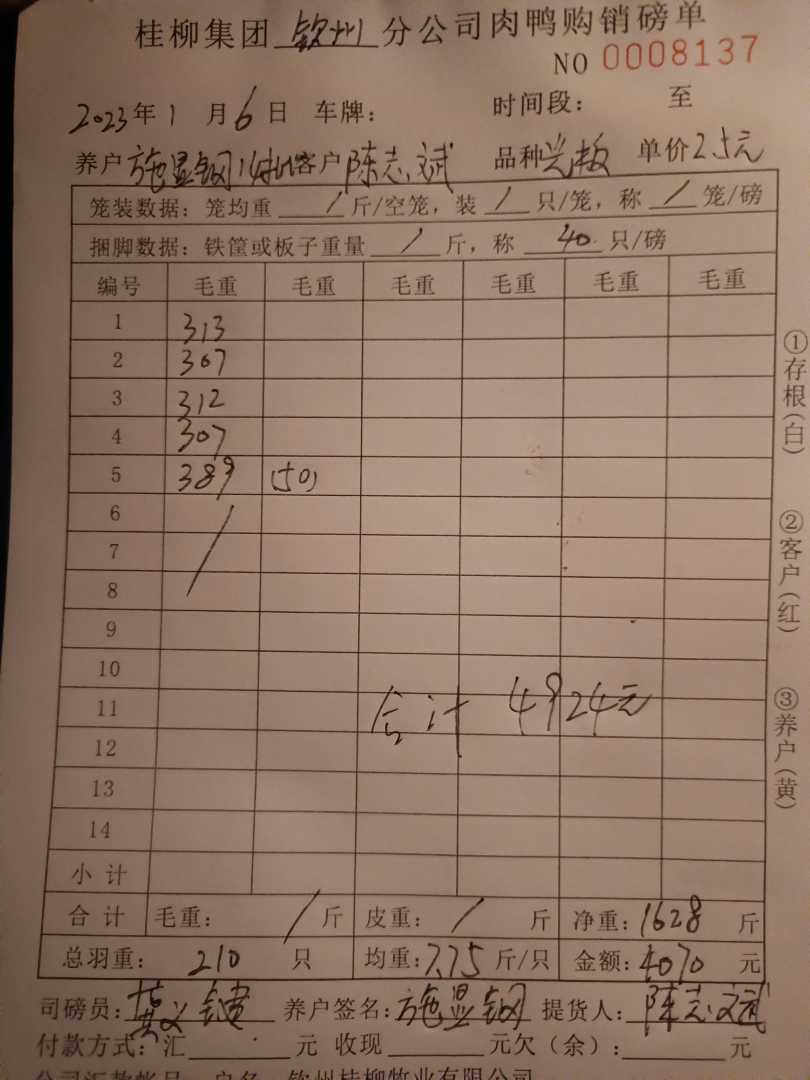 桂柳集团 钦州 分公司肉鸭购销磅单
NO 0008137
2023年1月6日 车牌： 时间段： 至
养户 施显钢 客户 陈志斌 品种 单价2.5元
笼装数据：笼均重 / 斤/空笼，装 / 只/笼，称 / 笼/磅
捆脚数据：铁筐或板子重量 / 斤，称 40 只/磅
编号 毛重 毛重 毛重 毛重 毛重 毛重
1 313
2 307
3 312
4 307
5 389 (50)
6
7
8
9
10
11
合计 4924元
12
13
14
小计
合计 毛重： / 斤 皮重： / 斤 净重：1628 斤
总羽重： 210 只 均重：7.75 斤/只 金额：4070 元
司磅员： 养户签名：施显钢 提货人：陈志斌
付款方式：汇 元 收现 元欠（余）： 元
公司汇款帐号 户名 钦州桂柳牧业有限公司
①存根(白) ②客户(红) ③养户(黄)